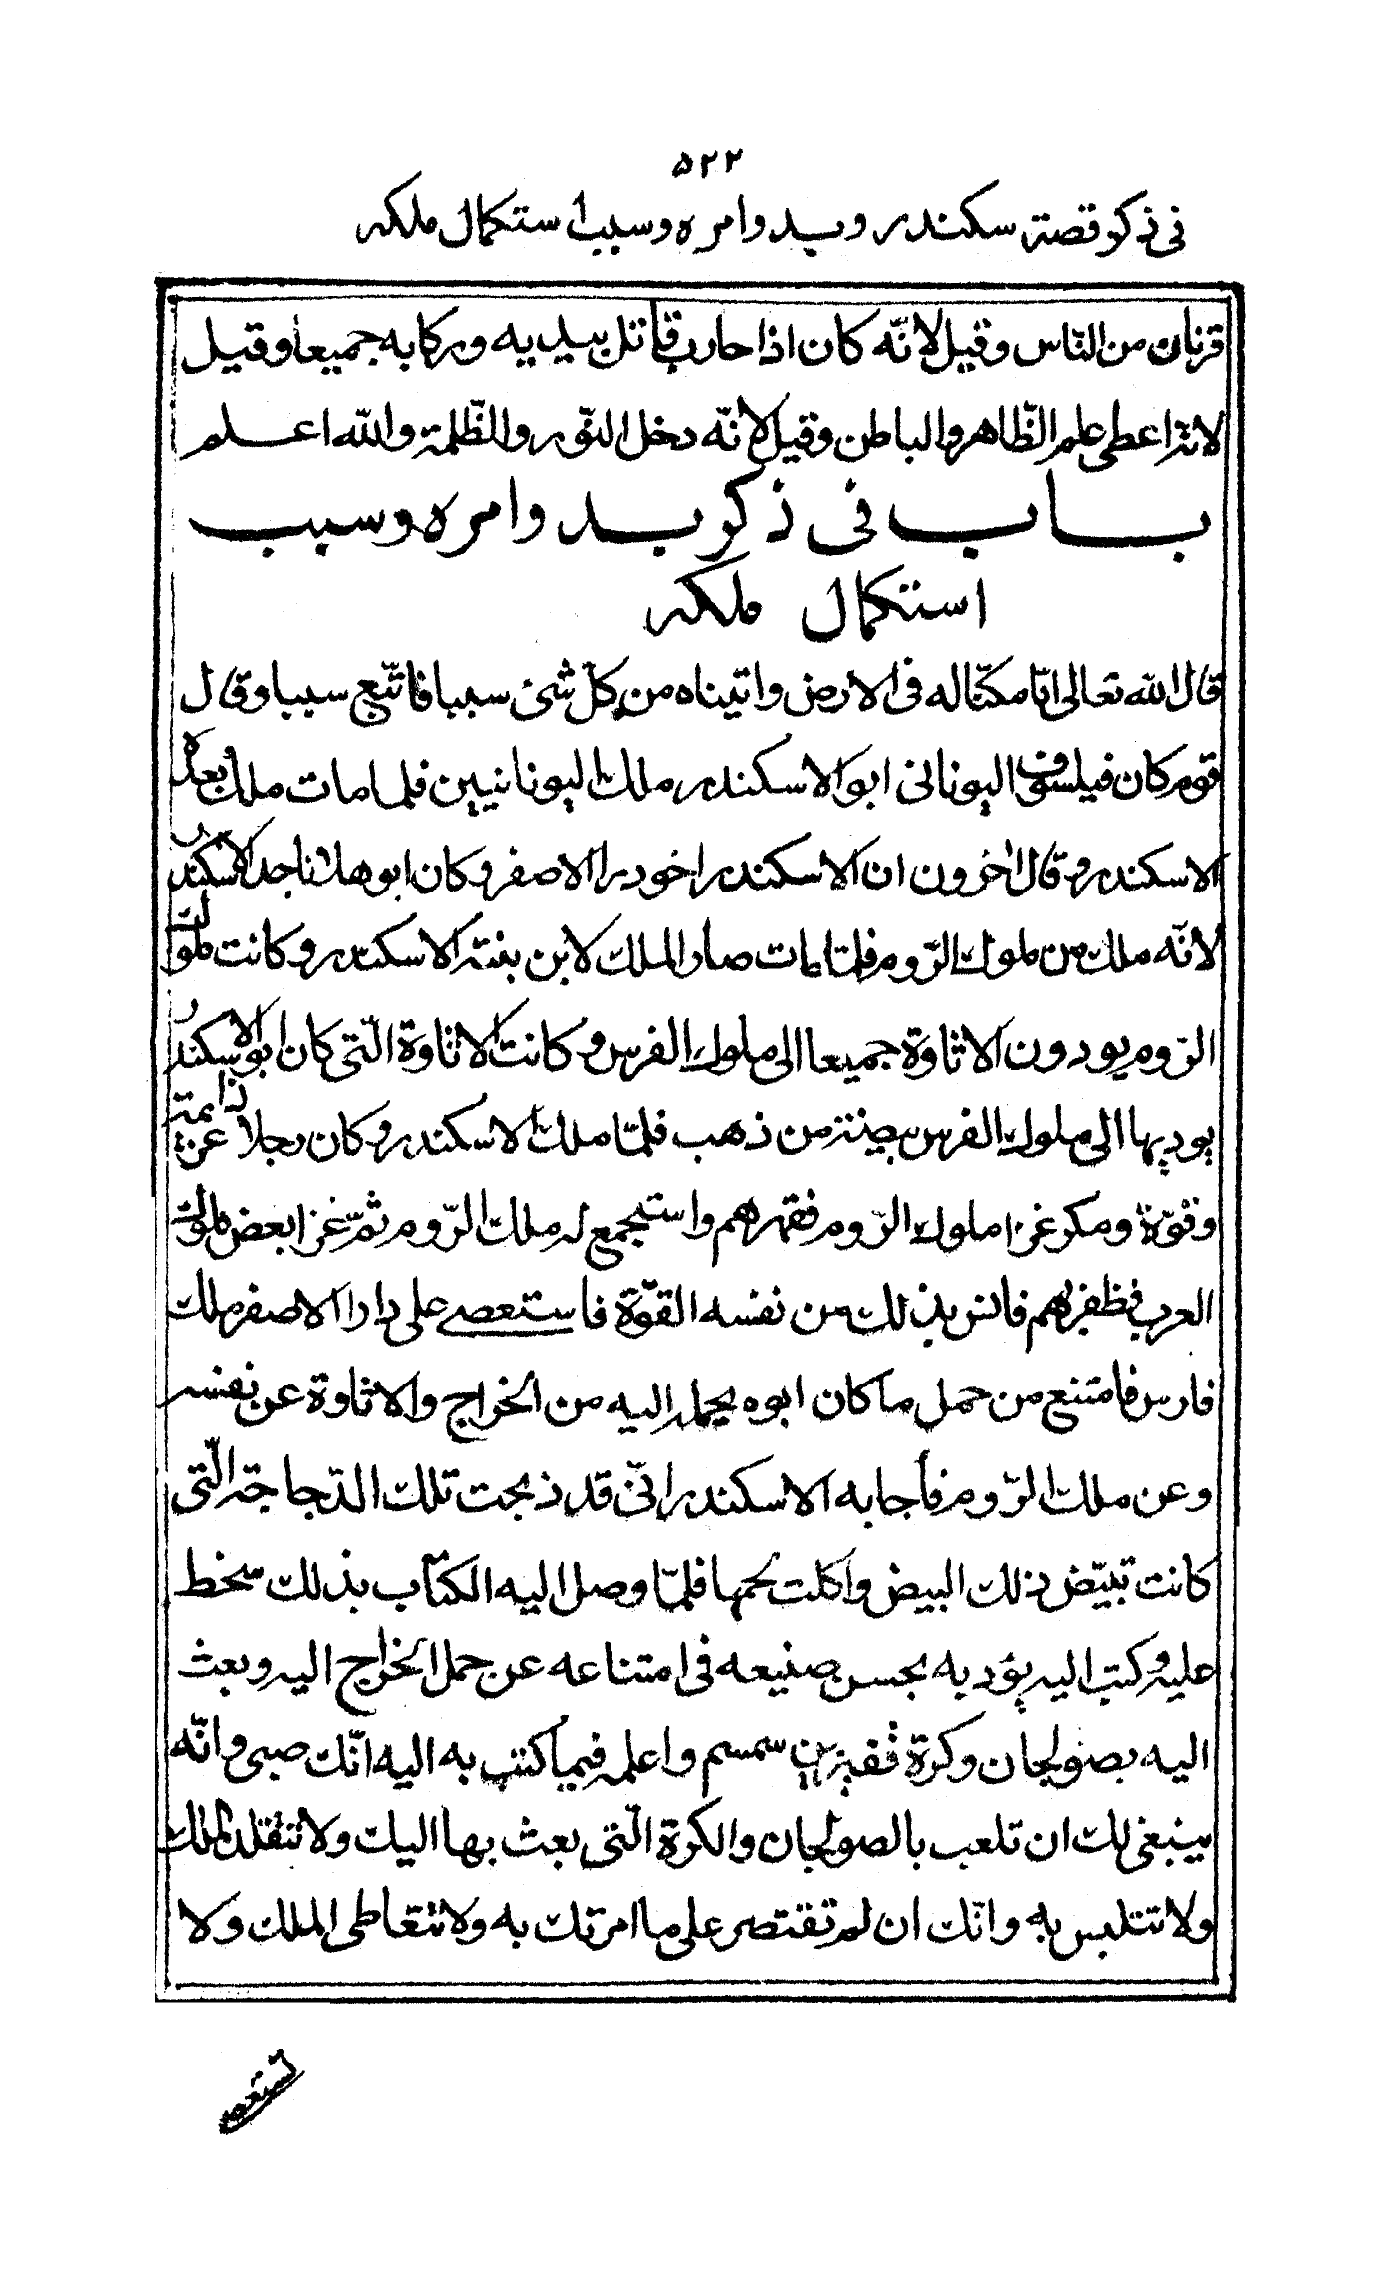 ۵۲۲
في ذكر قصة سكندر وبدو امره وسبب استكمال ملكه
قرنان من النّاس وقيل لانّه كان اذا حارب قاتل بيديه وركابه جميعا وقيل
لانّه اعطى علم الظّاهر والباطن وقيل لانّه دخل النّور والظّلمة والله اعلم
باب في ذكر بدو امره وسبب
استكمال ملكه
قال الله تعالى انّا مكنّا له في الارض واتيناه من كلّ شئ سببا فاتّبع سببا وقال
قوم كان فيلسوف اليوناني ابو الاسكندر ملك اليونانيين فلما مات ملك بعده
الاسكندر وقال اخرون ان الاسكندر اخو دارا الاصفر وكان ابو هذا جد الاسكندر
لانّه ملك من ملوك الرّوم فلمّا مات صار الملك لابن بنته الاسكندر وكانت ملوك
الرّوم يودون الاتاوة جميعا الى ملوك الفرس وكانت الاتاوة الّتي كان ابو الاسكندر
يوديها الى ملوك الفرس بيضة من ذهب فلمّا ملك الاسكندر وكان رجلا ذا عزيمة
وقوّة ومكر غزا ملوك الرّوم فقهرهم واستجمع له ملك الرّوم ثمّ غزا بعض ملوك
العرب فظفر بهم فانس بذلك من نفسه القوّة فاستعصے على دارا الاصفر ملك
فارس فامتنع من حمل ما كان ابوه يحمله اليه من الخراج والاتاوة عن نفسه
وعن ملك الرّوم فأجابه الاسكندر انّي قد ذبحت تلك الدّجاجة الّتي
كانت تبيّض ذلك البيض واكلت لحمها فلمّا وصل اليه الكتاب بذلك سخط
عليه وكتب اليه يؤديه بحسن صنيعه في امتناعه عن حمل الخراج اليه وبعث
اليه بصولجان وكرة وقفيز من سمسم واعلمه فيما كتب به اليه انّك صبي وانّه
ينبغي لك ان تلعب بالصولجان والكرة الّتي بعث بها اليك ولا تتقلد الملك
ولا تتلبس به وانّك ان لم تقتصر على ما امرتك به ولا تتعاطى الملك ولا